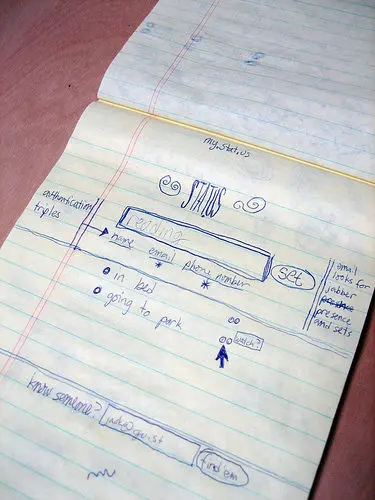 my.stat.us
STATUS
authentication
triples
reading
name email phone number
set
email
looks for
jabber
presence
presence
and sets
in bed
going to park
watch?
know someone?
find 'em